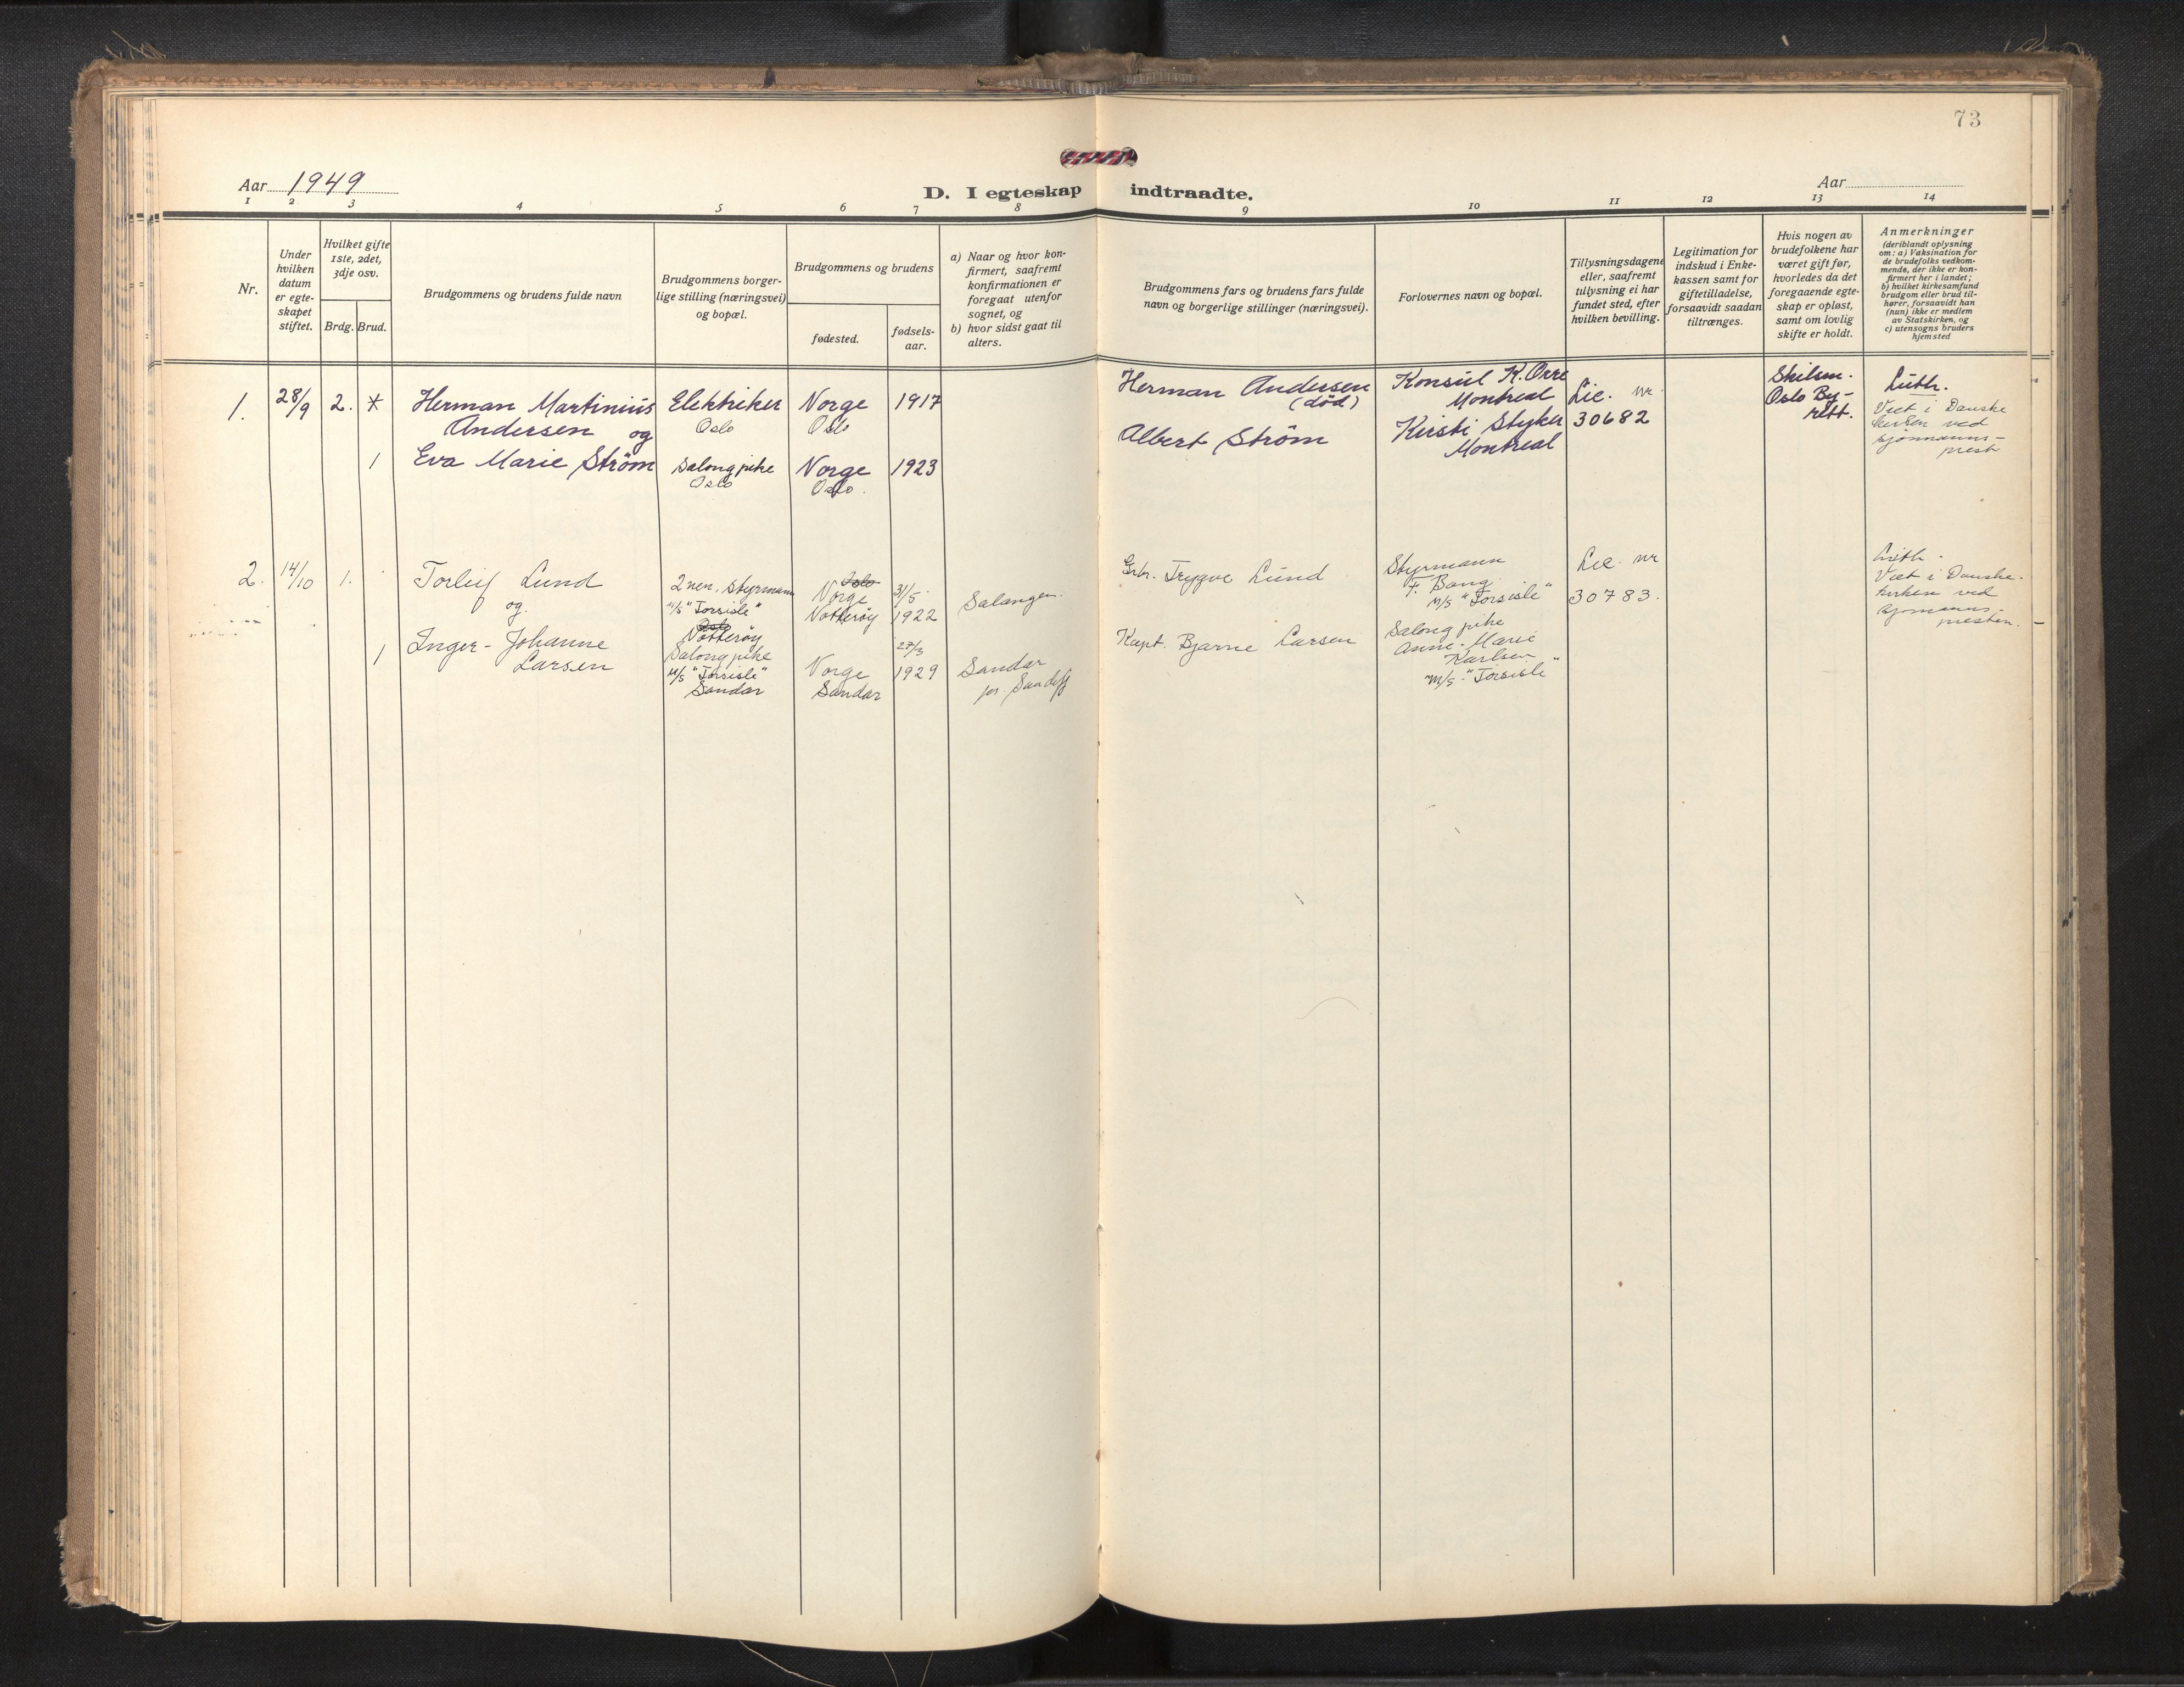 73
Aar 1949
D. I egteskap indtraadte.
Aar
1 2 3 4 5 6 7 8 9 10 11 12 13 14
Nr.
Under
hvilken
datum
er egte-
skapet
stiftet.
Hvilket gifte
1ste, 2det,
3dje osv.
Brdg. Brud.
Brudgommens og brudens fulde navn
Brudgommens borger-
lige stilling (næringsvei)
og bopæl.
Brudgommens og brudens
fødested.
fødsels-
aar.
a) Naar og hvor kon-
firmert, saafremt
konfirmationen er
foregaat utenfor
sognet, og
b) hvor sidst gaat til
alters.
Brudgommens fars og brudens fars fulde
navn og borgerlige stillinger (næringsvei).
Forlovernes navn og bopæl.
Tillysningsdagene
eller, saafremt
tillysning ei har
fundet sted, efter
hvilken bevilling.
Legitimation for
indskud i Enke-
kassen samt for
giftetilladelse,
forsaavidt saadan
tiltrænges.
Hvis nogen av
brudefolkene har
været gift før,
hvorledes da det
foregaaende egte-
skap er opløst,
samt om lovlig
skifte er holdt.
Anmerkninger
(deriblandt oplysning
om: a) Vaksination for
de brudefolks vedkom-
mende, der ikke er kon-
firmert her i landet;
b) hvilket kirkesamfund
brudgom eller brud til-
hører, forsaavidt han
(hun) ikke er medlem
av Statskirken, og
c) utensogns bruders
hjemsted
1.
28/9
2.
Herman Martinius
Andersen og
Eva Marie Ström
1
Elektriker
Oslo
Salongpike
Oslo
Norge
Oslo
Norge
Oslo.
1917
1923
Herman Andersen
(död)
Albert Ström
Konsul K. Orre
Montreal
Kirsti Styker
Montreal
Lic. nr.
30682
Skilsm.
Oslo By-
rett.
Luth.
Viet i Danske
kirken ved
sjömanns-
prest
2.
14/10
1.
Torleif Lund
og
Inger-Johanne
Larsen
1
2nen. Styrmann
M/S "Torsisle"
Nötteröy
Salongpike
M/S "Torsisle"
Sandar
Oslo
Norge
Nötteröy
Norge
Sandar
31/5
1922
27/3
1929
Salangen.
Sandar
pr. Sandefj
Trygve Lund
Kapt. Bjarne Larsen
Styrmann
F. Bang
M/S "Torsisle"
Salongpike
Anne-Marie
Karlsen
M/S "Torsisle"
Lic. nr
30783.
Luth.
Viet i Danske-
kirken ved
sjömanns-
presten.